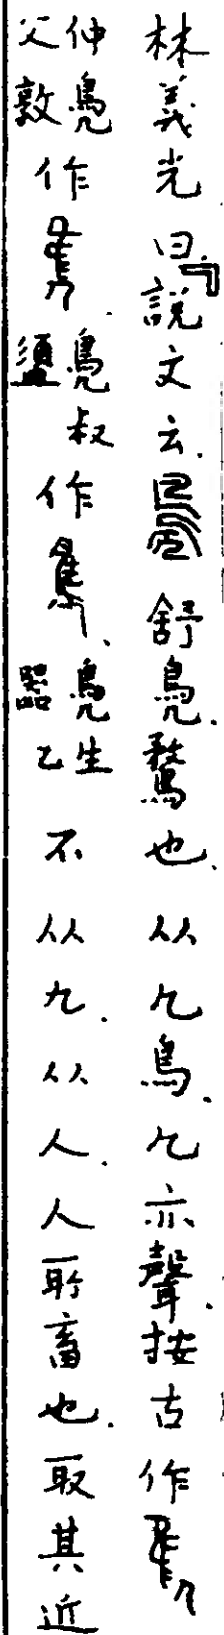 林義光曰『說文云舒鳧.鶩也.从几鳥.几亦聲.按古作
仲鳧父敦作鳧叔盨作、鳧生乙器不从九.从人.人所畜也.取其近